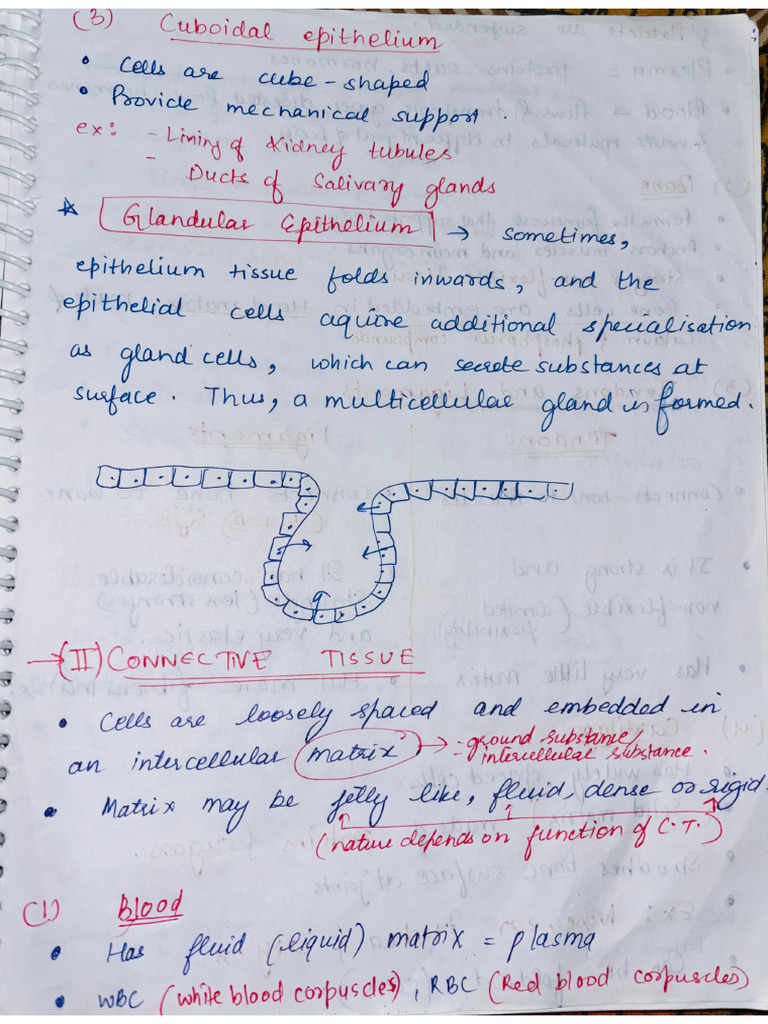 (3) Cuboidal epithelium
• Cells are cube-shaped
• Provide mechanical support.
ex: - Lining of Kidney tubules
- Ducts of Salivary glands
☆ Glandular Epithelium → sometimes,
epithelium tissue folds inwards, and the
epithelial cells aquire additional specialisation
as gland cells, which can secrete substances at
surface. Thus, a multicellular gland is formed.
→ (II) CONNECTIVE TISSUE
• Cells are loosely spaced and embedded in
an intercellular matrix → - ground substance/
- intercellular substance.
• Matrix may be jelly like, fluid, dense or rigid.
(nature depends on function of C.T.)
(1) Blood
• Has fluid (liquid) matrix = plasma
• WBC (white blood corpuscles), RBC (Red blood corpuscles)